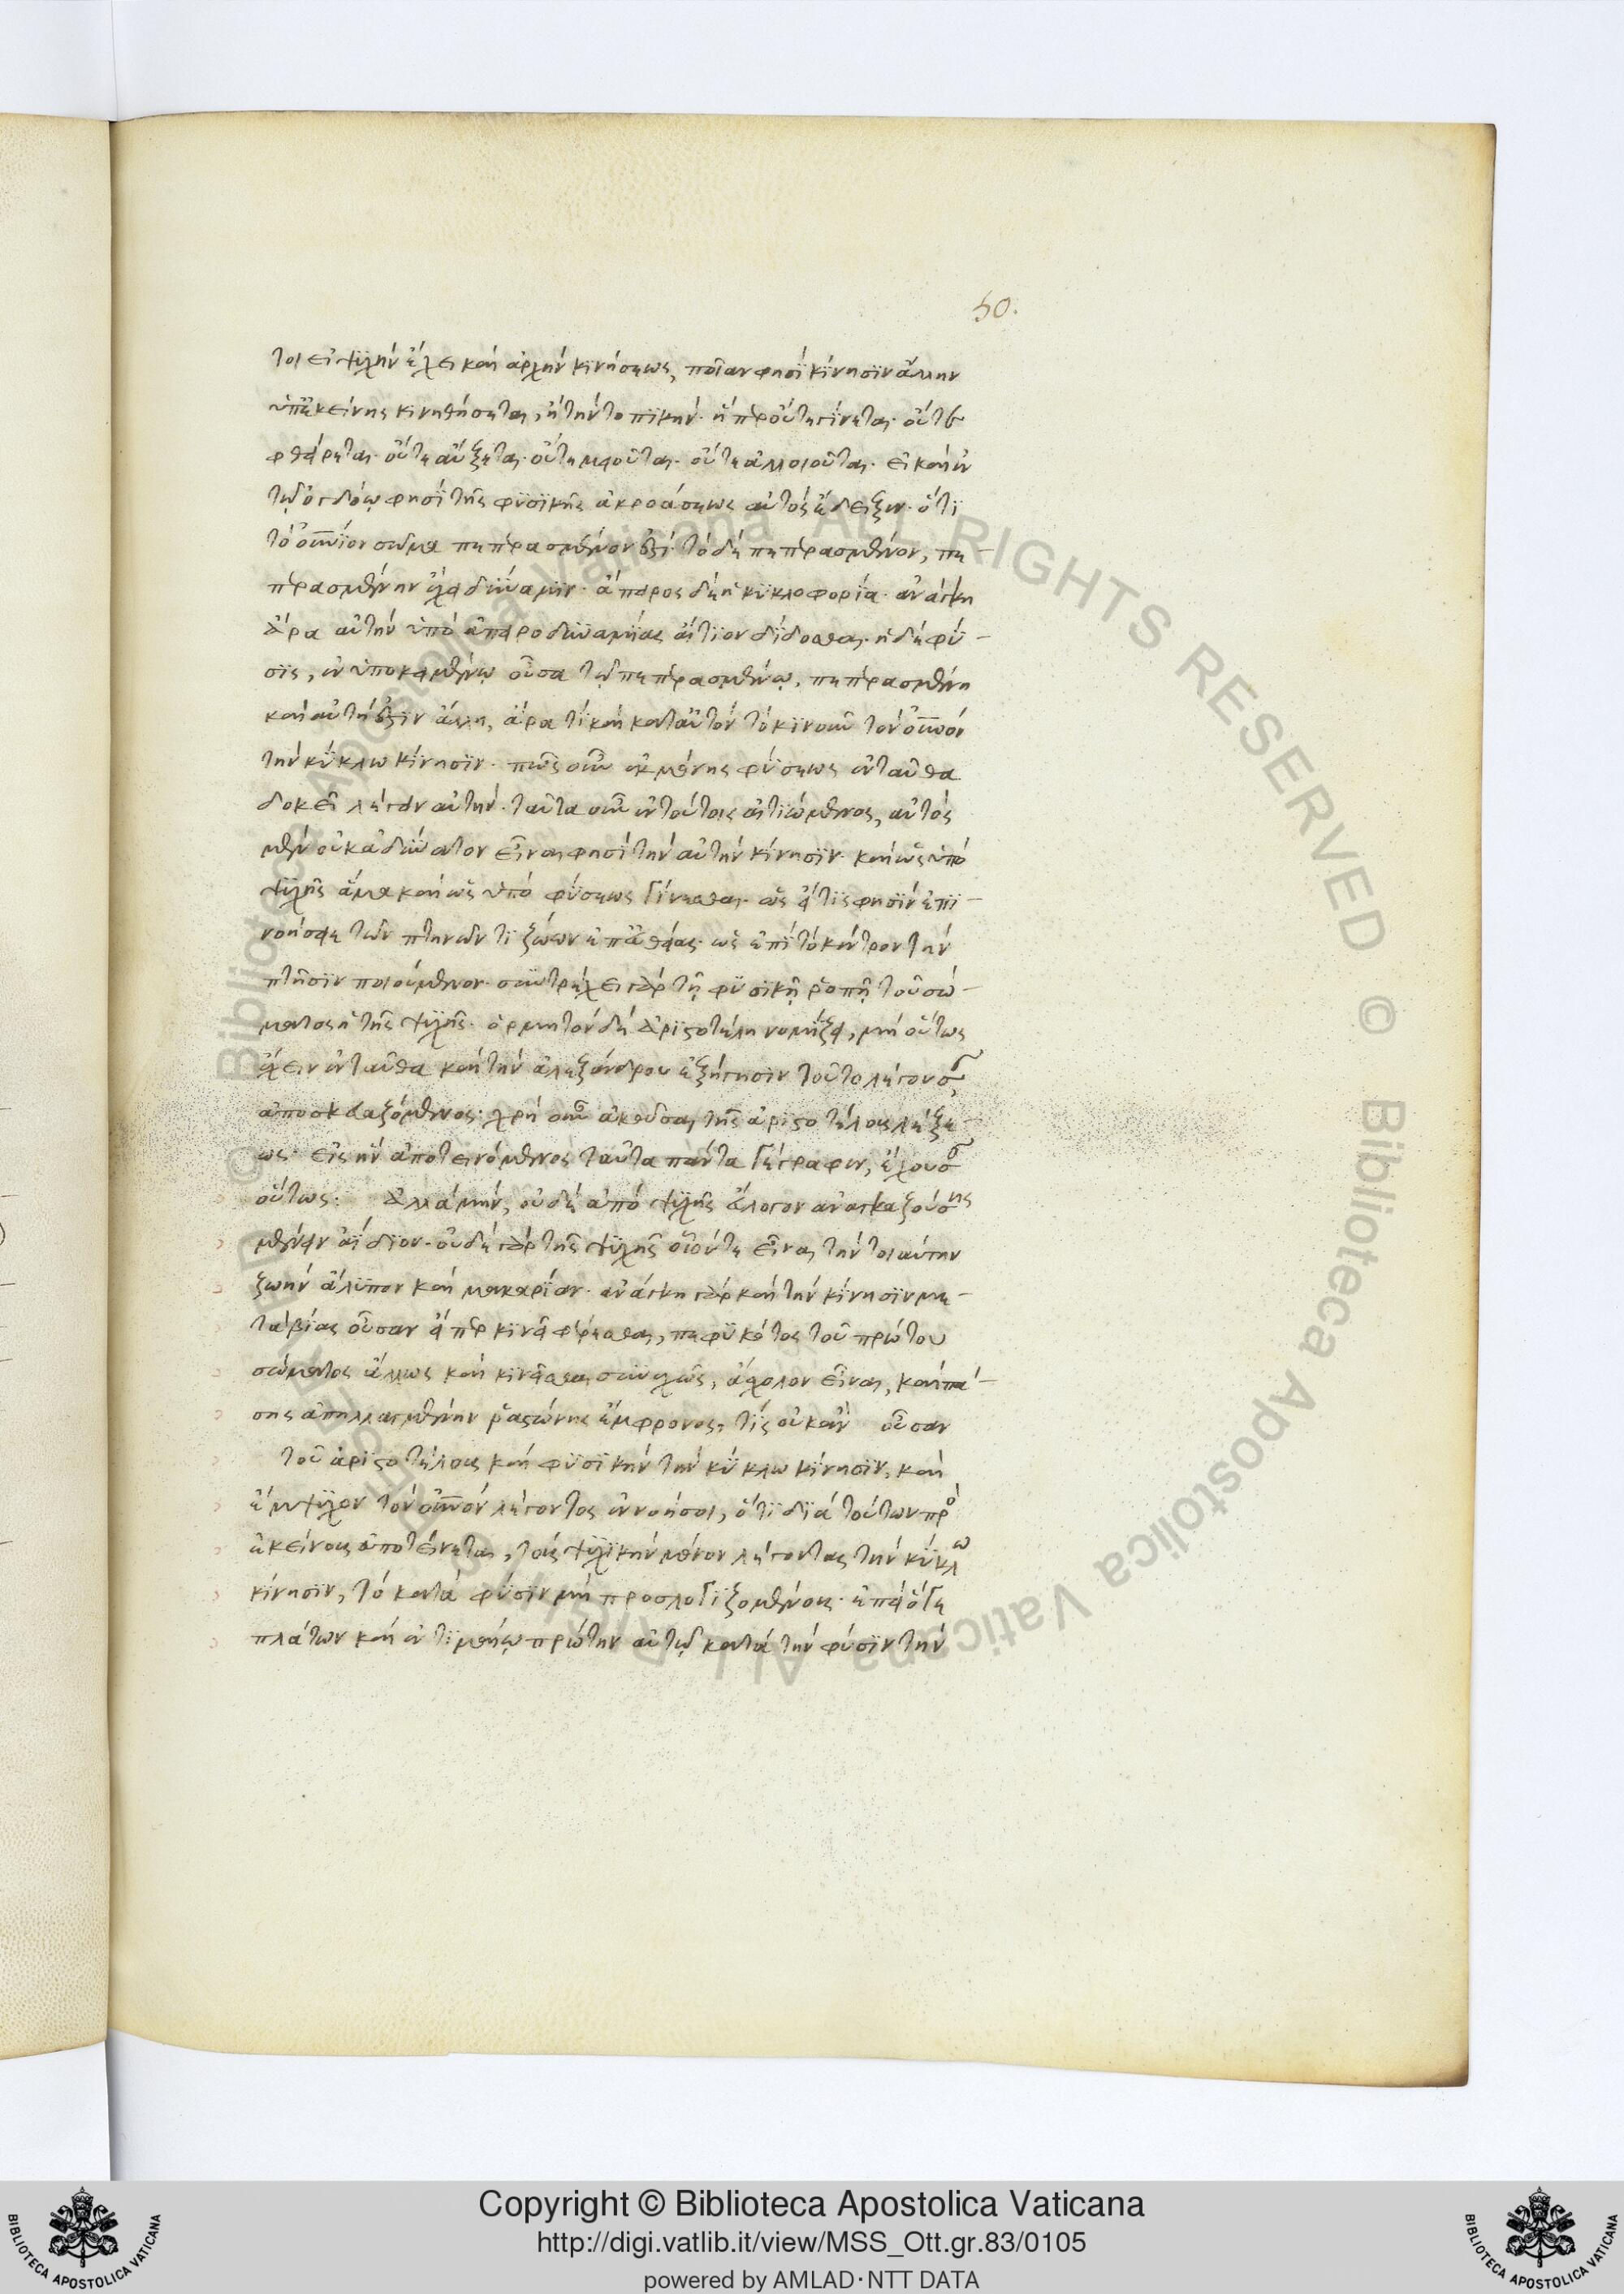 50.
τοι εἰ ψυχὴν ἔχει καὶ ἀρχὴν κινήσεως, ποίαν φησὶ κίνησιν ἄλλην
ὑπ' ἐκείνης κινηθήσεται, ἢ τὴν τοπικήν· ἥπερ οὔτε γίνεται· οὔτε
φθείρεται· οὔτε αὔξεται· οὔτε μειοῦται· οὔτε ἀλλοιοῦται· εἰ καὶ ἐν
τῷ ὀγδόῳ φησὶ τῆς φυσικῆς ἀκροάσεως αὐτὸς ἔδειξεν· ὅτι
τὸ οὐνιον σῶμα πεπερασμένον ἐστί τὸ δὲ πεπερασμένον, πε-
περασμένην ἔχει δύναμιν· ἄπειρος δὲ ἡ κυκλοφορία· ἀνάγκη
ἄρα αὐτὴν ὑπὸ ἀπειροδυνάμου αἴτιον δίδοσθαι· ἡ δὲ φύ-
σις, ἐν ὑποκειμένῳ οὖσα τῷ πεπερασμένῳ, πεπερασμένη
καὶ αὐτή ἐστιν ἄλλη, ἄρα τὶ καὶ κατ' αὐτὸν τὸ κινοῦν τὸν οὐνον
τὴν κύκλω κίνησιν· πῶς οὖν ἐκ μόνης φύσεως ἐνταῦθα
δοκεῖ λέγειν αὐτήν· ταῦτα οὖν ἐν τούτοις αἰτιώμενος, αὐτὸς
μὲν οὐκ ἀδύνατον εἶναι φησὶ τὴν αὐτὴν κίνησιν· καὶ ὡς ὑπὸ
ψυχῆς ἅμα καὶ ὡς ὑπὸ φύσεως γίνεσθαι· ὡς εἴ τις φησὶν ἐπι-
νοήσειε τῶν πτηνῶν τι ζώων ἐπ' εὐθείας· ὡς ἐπὶ τὸ κέντρον τὴν
πτῆσιν ποιούμενον· συντρέχει γὰρ τῇ φυσικῇ ῥοπῇ τοῦ σώ-
ματος ἡ τῆς ψυχῆς· ὁρμὴ τὸν δὲ ἀριστοτέλη νομίζει, μὴ οὕτως
ἔχειν ἐνταῦθα καὶ τὴν ἀλεξάνδρου ἐξήγησιν τοῦτο λέγουσ
ἀποσκευαζόμενος· χρὴ οὖν ἀκοῦσαι τῆς ἀριστοτέλους λέξε-
ως· εἰς ἣν ἀποτεινόμενος ταῦτα πάντα γέγραφεν, ἔχουσ
οὕτως: ἀλλὰ μὴν, οὐδὲ ἀπὸ ψυχῆς ἄλογον ἀναγκαζούσης
μένειν ἀΐδιον· οὐδὲ γὰρ τῆς ψυχῆς οἷόν τε εἶναι τὴν τοιαύτην
ζωὴν ἄλυπον καὶ μακαρίαν· ἀνάγκη γὰρ καὶ τὴν κίνησιν με-
τὰ βίας οὖσαν εἴπερ κινεῖ φέρεσθαι, πεφυκότος τοῦ πρώτου
σώματος ἄλλως καὶ κινεῖσθαι συνεχῶς, ἄσχολον εἶναι, καὶ πά-
σης ἀπηλλαγμένην ῥαστώνης ἔμφρονος, τίς οὐκ ἂν οὖσαν
τοῦ ἀριστοτέλους καὶ φυσικὴν τὴν κύκλω κίνησιν, καὶ
ἔμψυχον τὸν οὐνὸν λέγοντος ἐννοήσοι, ὅτι διὰ τούτων πρὸ
ἐκείνους ἀποτείνεται, τοὺς ψυχικὴν μόνον λέγοντας τὴν κύκλω
κίνησιν, τὸ κατὰ φύσιν μὴ προσλογιζομένους· ἐπεὶ ὅγε
πλάτων καὶ ἐν τιμαίῳ πρώτην αὐτῷ κατὰ τὴν φύσιν τὴν
Copyright © Biblioteca Apostolica Vaticana
http://digi.vatlib.it/view/MSS_Ott.gr.83/0105
powered by AMLAD·NTT DATA
BIBLIOTECA APOSTOLICA VATICANA
BIBLIOTECA APOSTOLICA VATICANA